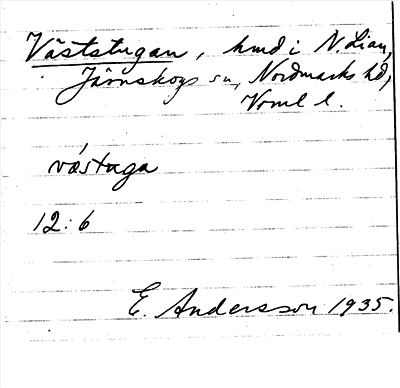 Väststugan, hmd i N. Lian,
Järnskogs sn, Nordmarks hd,
Vrml l.
västuga
12:6
E. Andersson 1935.